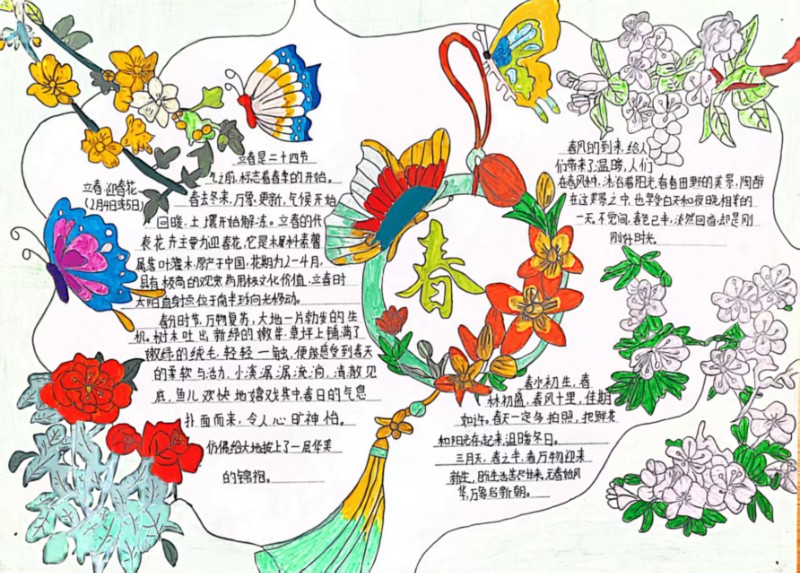 立春是二十四节
气之前,标志着春季的开始。
立春:迎春花
(2月4日或5日)
春去冬来,万象更新,气候开始
回暖,土壤开始解冻。立春的代
表花卉主要为迎春花,它是木犀科素馨
属落叶灌木,原产于中国,花期为2-4月,
具有极高的观赏
文化价值。立春时
太阳直射点位于南半球向北移动。
春分时节,万物复苏,大地一片勃勃的生
机。树木吐出新绿的嫩芽,草坪上铺满了
嫩绿的绒毛,轻轻一触,便能感受到春天
的柔软与活力,小溪潺潺流淌,清澈见
底,鱼儿欢快地嬉戏其中,春日的气息
扑面而来,令人心旷神怡。
仿佛给大地披上了一层华美
的锦裙。
春
春风的到来,给人
们带来了温暖,人们
在春风中,沐浴着阳光,看着田野的美景,陶醉
在这美景之中,也享受白天和夜晚相等的
一天。不觉间,春已已半,泱然回首,却是刚
刚好时光。
春水初生,春
林初盛,春风十里,佳期
如许。春天一定多拍照,把鲜美
和阳光存起来,温暖冬日。
三月天,春之半,春万物迎来
新生,盼生活苦尽甘来,
万象启新朝。